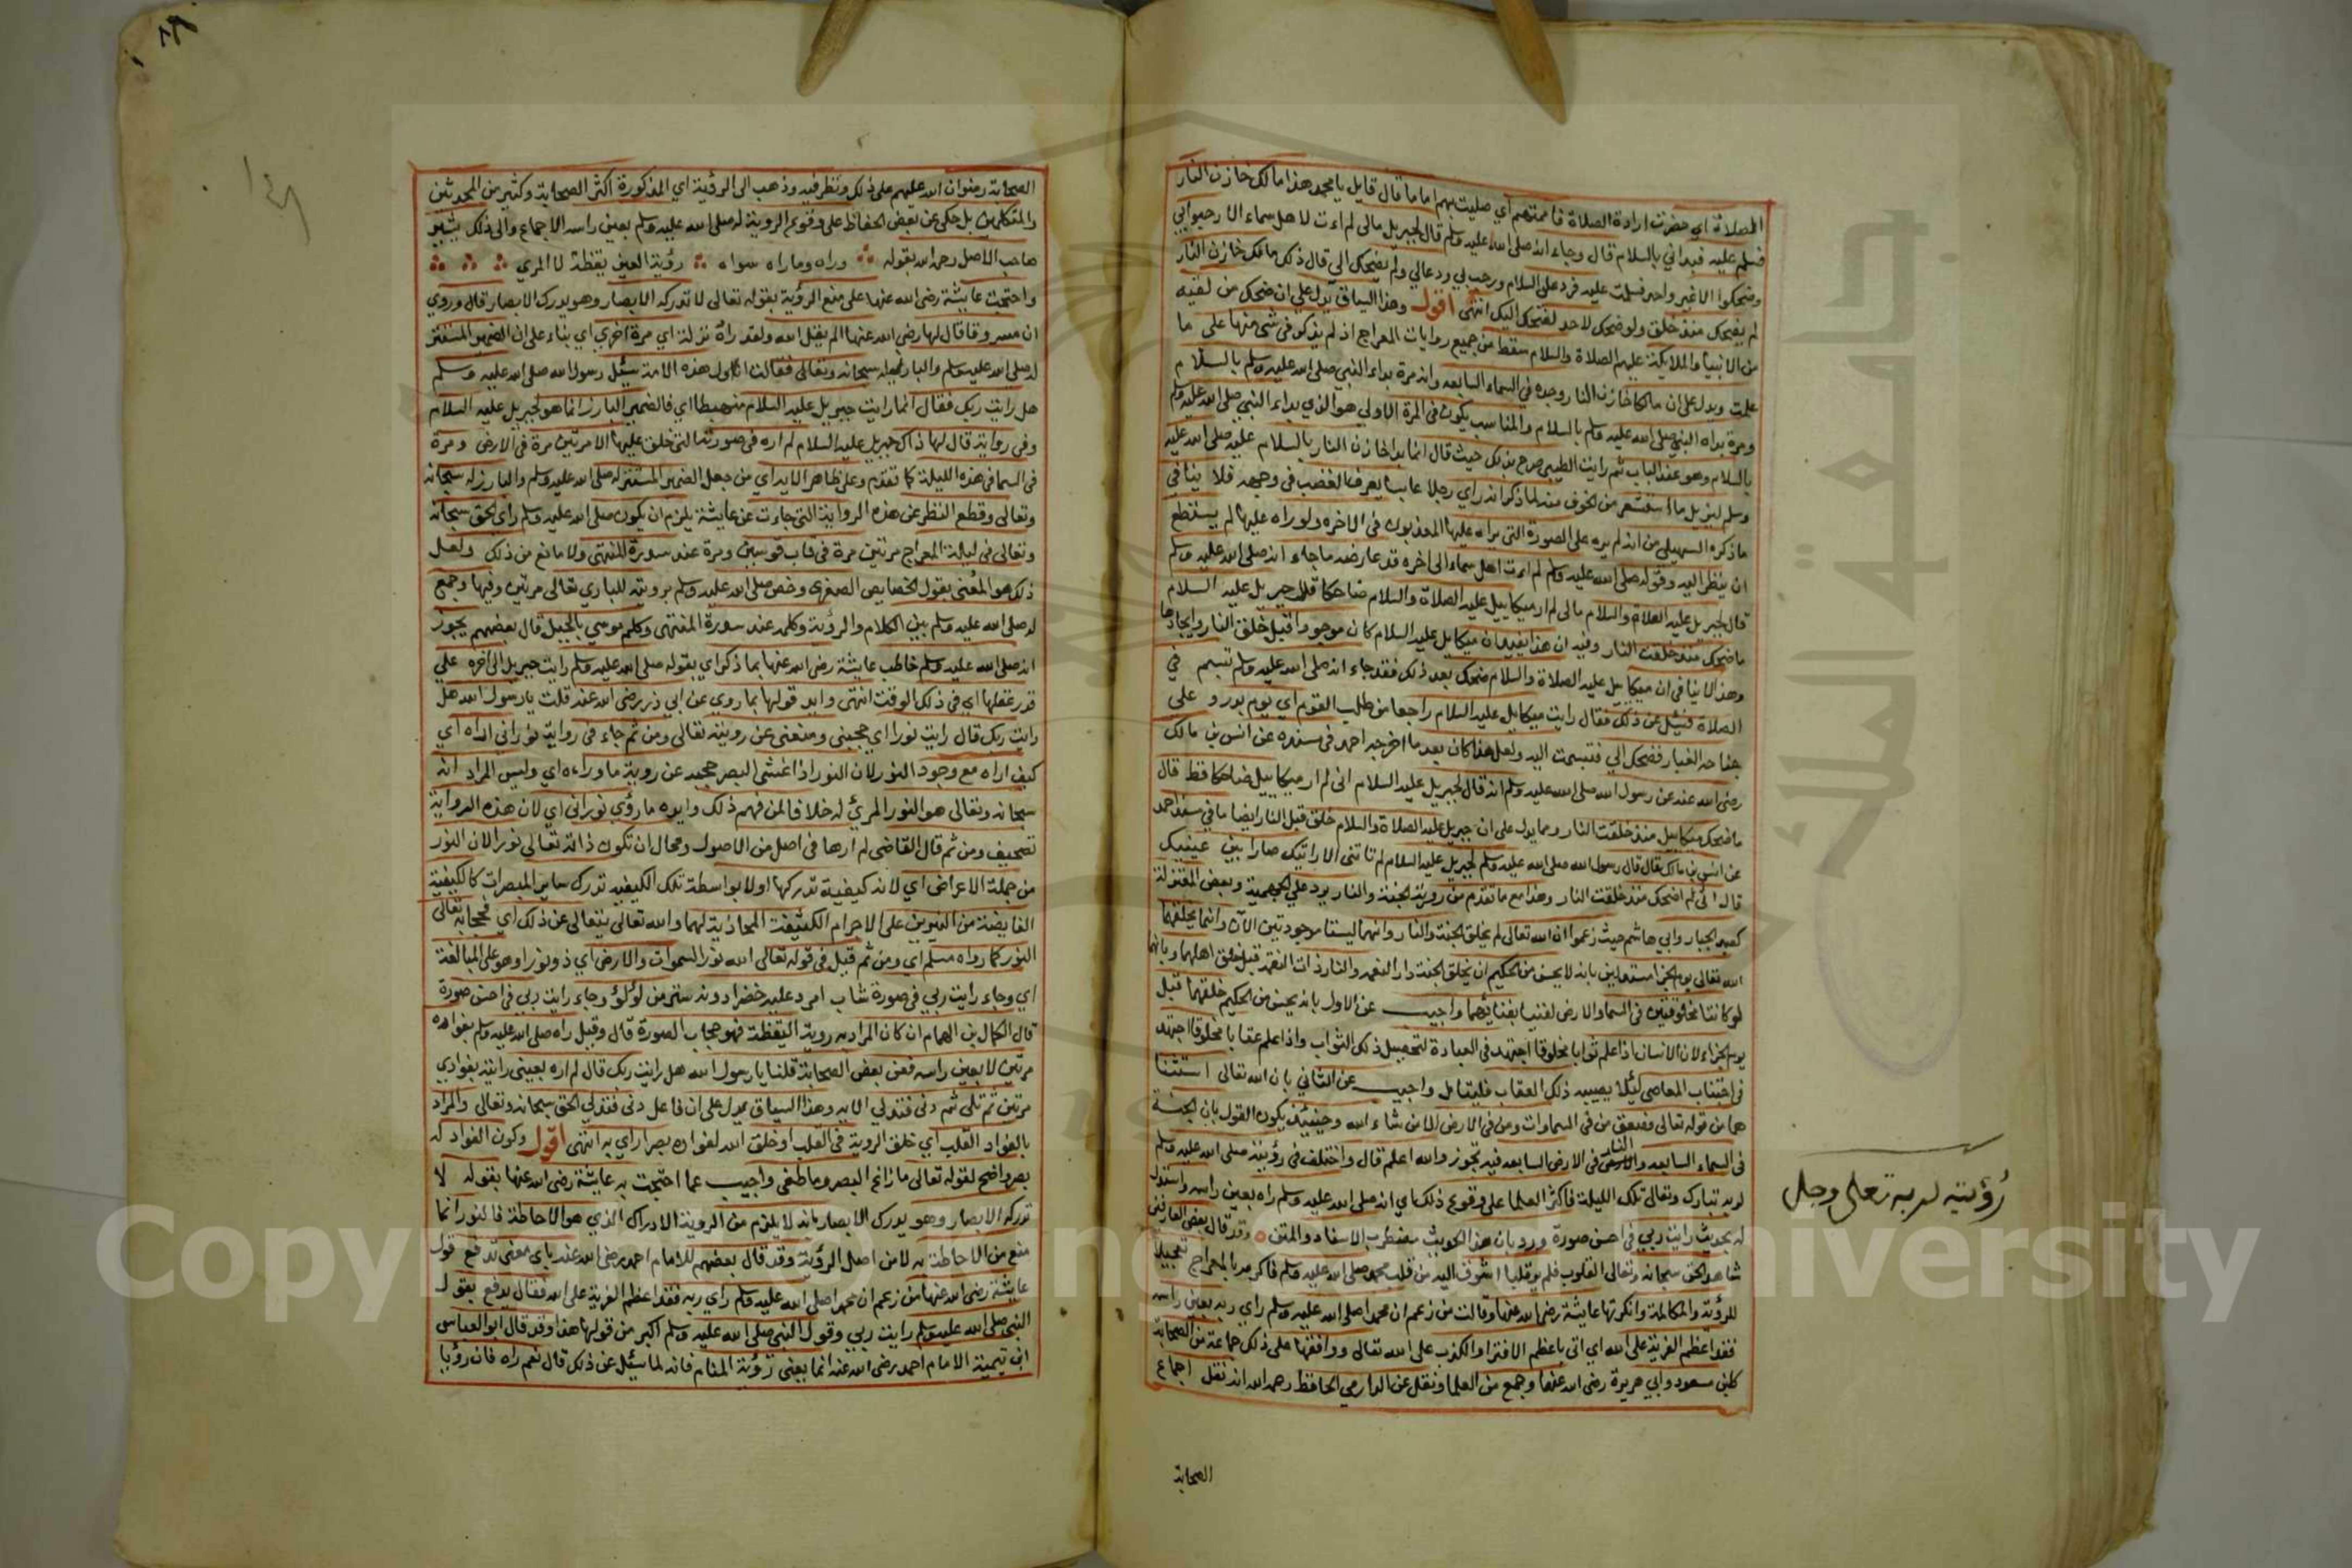 الصلاة اي حضرت ارادة الصلاة فاممتهم اي صليت بهم اماما قال قايل يا محمد هذا مالك خازن النار
فسلم عليه فبداني بالسلام قال وجاء انه صلى الله عليه وسلم قال لجبريل مالي لم اءت لاهل سماء الا رحبوا بي
وضحكوا الا غير واحد فسلمت عليه فرد علي السلام ورحب بي ودعا لي ولم يضحك الي قال ذلك مالك خازن النار
لم يضحك منذ خلق ولو ضحك لاحد لضحك اليك انتهى اقول وهذا السياق يدل علي ان ضحك من لقيه
من الانبيا والملايكة عليهم الصلاة والسلام سقط من جميع روايات المعراج اذ لم يذكر في شي منها على ما
علمت ويدل على ان مالكا خازن النار وجده في السماء السابعه وانه مرة بداء النبي صلى الله عليه وسلم بالسلام
ومرة بداه النبي صلى الله عليه وسلم بالسلام والمناسب يكون في المرة الاولي هو الذي بداء النبي صلى الله عليه وسلم
بالسلام وهو عند الباب ثم رايت الطيبي صرح بذلك حيث قال انما بدا خازن النار بالسلام عليه صلى الله عليه
وسلم ليزيل ما استشعر من الخوف منه لما ذكر انه راي رجلا عابسا يعرف الغضب في وجهه فلا ينافي
ما ذكره السهيلي من انه لم يره على الصورة التي يراه عليها المعذبون في الاخره ولو راه عليها لم يستطع
ان ينظر اليه وقوله صلى الله عليه وسلم لم اءت اهل سماء الى اخره قد عارضه ما جاء انه صلى الله عليه وسلم
قال لجبريل عليه الصلاة والسلام مالي لم ار ميكاييل عليه الصلاة والسلام ضاحكا قال جبريل عليه السلام
ما ضحك منذ خلقت النار وفيه ان هذا يفيد ان ميكايل عليه السلام كان موجودا قبل خلق النار وايجادها
وهذا لا ينافي ان ميكاييل عليه الصلاة والسلام ضحك بعد ذلك فقد جاء انه صلى الله عليه وسلم تبسم في
الصلاة فسئل عن ذلك فقال رايت ميكايل عليه السلام راجعا من طلب القوم اي يوم بدر و على
جناحه الغبار فضحك الي فتبسمت اليه ولعل هذا كان بعد ما اخرجه احمد في مسنده عن انس بن مالك
رضي الله عنه عن رسول الله صلى الله عليه وسلم انه قال لجبريل عليه السلام اني لم ار ميكاييل ضاحكا قط قال
ما ضحك ميكاييل منذ خلقت النار ومما يدل على ان جبريل عليه الصلاة والسلام خلق قبل النار ايضا ما في مسند احمد
عن انس بن مالك قال قال رسول الله صلى الله عليه وسلم لجبريل عليه السلام لم تاتني الا رايتك صارا بين عينيك
قال اني لم اضحك منذ خلقت النار وهذا مع ما تقدم من رويته الجنة والنار يرد علي الجهمية وبعض المعتزلة
كعبد الجبار وابي هاشم حيث زعموا ان الله تعالى لم يخلق الجنة والنار وانهما ليستا موجودتين الآن وانما يخلقهما
الله تعالى يوم الجزا مستدلين بانه لا يحسن من الحكيم ان يخلق الجنة دار النعيم والنار ذات النقم قبل خلق اهلهما وبانهما
لو كانتا مخلوقتين في السما والارض لفنيا بفنائهما واجيب عن الاول بانه يحسن من الحكيم خلقهما قبل
يوم الجزاء لان الانسان اذا علم ثوابا مخلوقا اجتهد في العبادة لتحصيل ذلك الثواب واذا علم عقابا مخلوقا اجتهد
في اجتناب المعاصي ليلا يصيبه ذلك العقاب فليتامل واجيب عن الثاني بان الله تعالى استثنا
هما من قوله تعالى فصعق من في السماوات ومن في الارض الا من شاء الله وحينيذ يكون القول بان الجنة
في السماء السابعه والنار في الارض السابعه فيه تجوز والله اعلم قال واختلف في رؤيته صلى الله عليه وسلم
لربه تبارك وتعالى تلك الليلة فاكثر العلما على وقوع ذلك اي انه صلى الله عليه وسلم راه بعين راسه واستدل
له بحديث رايت ربي في احسن صورة ورد بان هذا الحديث مضطرب الاسناد والمتن وقد قال بعض العارفين
شاهد الحق سبحانه وتعالى القلوب فلم ير قلبا اشوق اليه من قلب محمد صلى الله عليه وسلم فاكرمه بالمعراج تعجيلا
للرؤية والمكالمة وانكرتها عايشة رضي الله عنها وقالت من زعم ان محمدا صلى الله عليه وسلم راي ربه بعين راسه
فقد اعظم الفرية على الله اي اتى باعظم الافترا والكذب على الله تعالى ووافقها على ذلك جماعة من الصحابة
كابن مسعود وابي هريرة رضي الله عنهما وجمع من العلما ونقل عن الدارمي الحافظ رحمه الله انه نقل اجماع
الصحابة
رؤيته لربه تعالى وجل
الصحابة رضوان الله عليهم على ذلك ونظر فيه وذهب الى الرؤية اي المذكورة اكثر الصحابة وكثير من المحدثين
والمتكلمين بل حكى عن بعض الحفاظ على وقوع الروية له صلى الله عليه وسلم بعين راسه الاجماع والى ذلك يشير
صاحب الاصل رحمه الله بقوله وراه وما راه سواه رؤية العين يقظة لا المري
واحتجت عايشة رضي الله عنها على منع الرؤية بقوله تعالى لا تدركه الابصار وهو يدرك الابصار قال وروي
ان مسروقا قال لها رضي الله عنها الم يقل الله ولقد راه نزلة اي مرة اخرى اي بناء على ان الضمير المستتر
له صلى الله عليه وسلم والبارز له سبحانه وتعالى فقالت انا اول هذه الامة سئل رسول الله صلى الله عليه وسلم
هل رايت ربك فقال انما رايت جبريل عليه السلام منهبطا اي فالضمير البارز انما هو لجبريل عليه السلام
وفي رواية قال لها ذاك جبريل عليه السلام لم اره في صورته التي خلق عليها الا مرتين مرة في الارض ومرة
في السما في هذه الليلة كما تقدم وعلى ظاهر الاية اي من جعل الضمير المستتر له صلى الله عليه وسلم والبارز له سبحانه
وتعالى وقطع النظر عن هذه الرواية التي جاءت عن عايشة يلزم ان يكون صلى الله عليه وسلم راى الحق سبحانه
وتعالى في ليلة المعراج مرتين مرة في قاب قوسين ومرة عند سدرة المنتهى ولا مانع من ذلك ولعل
ذلك هو المعني بقول الخصايص الصغرى وخص صلى الله عليه وسلم برويته للباري تعالى مرتين وفيها وجمع
له صلى الله عليه وسلم بين الكلام والرؤية وكلمه عند سدرة المنتهى وكلم موسي بالجبل قال بعضهم يجوز
انه صلى الله عليه وسلم خاطب عايشة رضي الله عنها بما ذكر اي بقوله صلى الله عليه وسلم رايت جبريل الى اخره علي
قدر عقلها اي في ذلك الوقت انتهى وايد قولها بما روي عن ابي ذر رضي الله عنه قلت يا رسول الله هل
رايت ربك قال رايت نورا اي حجبني ومنعني عن رويته تعالى ومن ثم جاء في رواية نور اني اراه اي
كيف اراه مع وجود النور لان النور اذا غشي البصر حجبه عن روية ما وراءه اي وليس المراد انه
سبحانه وتعالى هو النور المرئي له خلافا لمن فهم ذلك وايده ما روي نوراني اي لان هذه الرواية
تصحيف ومن ثم قال القاضي لم ارها في اصل من الاصول ومحال ان تكون ذاته تعالى نورا لان النور
من جملة الاعراض اي لانه كيفية تدركها اولا بواسطة تلك الكيفيه تدرك ساير المبصرات كالكيفية
الفايضة من النيرين على الاجرام الكثيفة المحاذية لهما والله تعالى يتعالى عن ذلك اي فحجابه تعالى
النور كما رواه مسلم اي ومن ثم قيل في قوله تعالى الله نور السموات والارض اي ذو نور او هو على المبالغة
اي وجاء رايت ربي في صورة شاب امرد عليه حلة خضرا دونه ستر من لؤلؤ وجاء رايت ربي في احسن صورة
قال الكمال بن الهمام ان كان المراد به روية اليقظة فهو حجاب الصورة قال وقيل راه صلى الله عليه وسلم بفواده
مرتين لا بعين راسه فعن بعض الصحابة قلنا يا رسول الله هل رايت ربك قال لم اره بعيني رايته بفوادي
مرتين ثم تلى ثم دنى فتدلي الايه وهذا السياق يدل على ان فاعل دنى فتدلي الحق سبحانه وتعالى والمراد
بالفواد القلب اي خلق الروية في القلب او خلق الله لفواده بصرا راي به انتهى اقول وكون الفواد له
بصر واضح لقوله تعالى ما زاغ البصر وما طغى واجيب عما احتجت به عايشة رضي الله عنها بقوله لا
تدركه الابصار وهو يدرك الابصار بانه لا يلزم من الروية الادراك الذي هو الاحاطة فالنور انما
منع من الاحاطة به لا من اصل الرؤية وقد قال بعضهم للامام احمد رضي الله عنه باي معنى تدفع قول
عايشة رضي الله عنها من زعم ان محمدا صلى الله عليه وسلم راي ربه فقد اعظم الفرية على الله فقال يدفع بقول
النبي صلى الله عليه وسلم رايت ربي وقول النبي صلى الله عليه وسلم اكبر من قولها هذا وقد قال ابو العباس
ابن تيمية الامام احمد رضي الله عنه انما يعني رؤية المنام فانه لما سئل عن ذلك قال نعم راه فان رؤيا
Copyright © King Saud University
جامعة الملك سعود